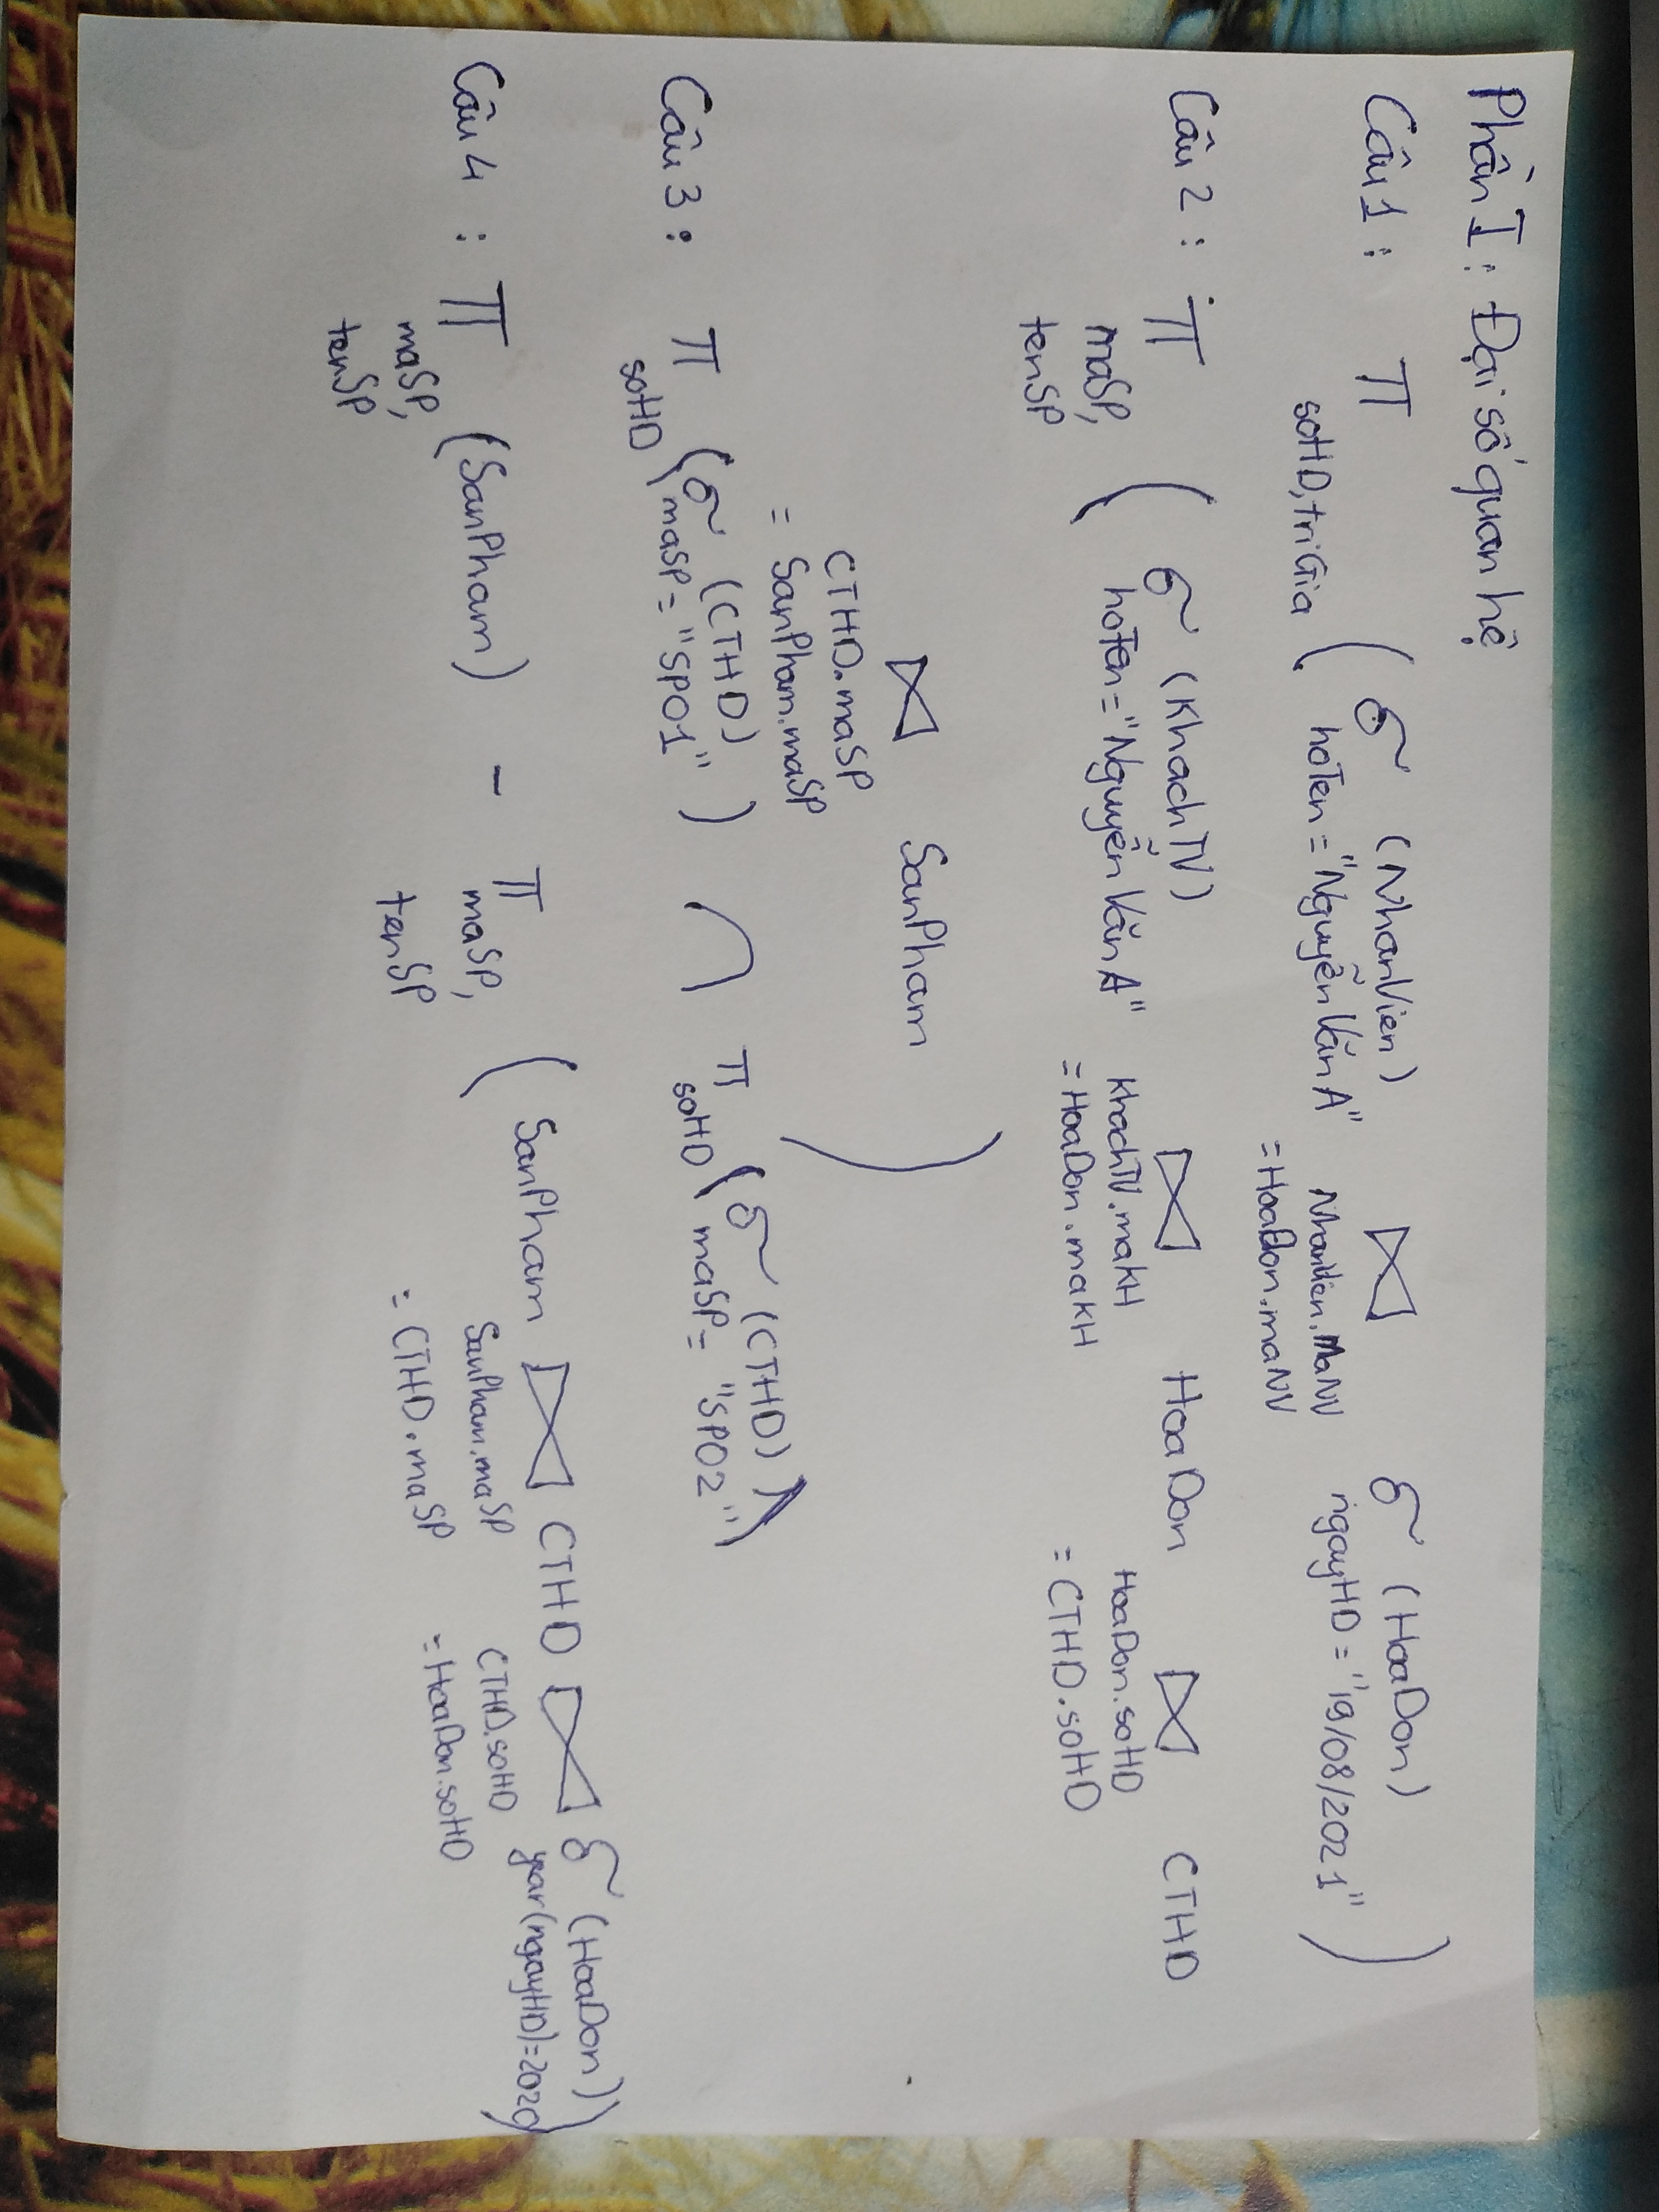 Phần I: Đại số quan hệ
Câu 1 : π soHD, triGia ( σ hoTen = "Nguyễn Văn A" (NhanVien) ⋈ NhanVien.MaNV = HoaDon.maNV σ ngayHD = "19/08/2021" (HoaDon) )
Câu 2 : π maSP, tenSP ( σ hoTen = "Nguyễn Văn A" (KhachTV) ⋈ KhachTV.maKH = HoaDon.maKH HoaDon ⋈ HoaDon.soHD = CTHD.soHD CTHD
⋈ CTHD.maSP = SanPham.maSP SanPham )
Câu 3 : π soHD ( σ maSP = "SP01" (CTHD) ) ∩ π soHD ( σ maSP = "SP02" (CTHD) )
Câu 4 : π maSP, tenSP (SanPham) - π maSP, tenSP ( SanPham ⋈ SanPham.maSP = CTHD.maSP CTHD ⋈ CTHD.soHD = HoaDon.soHD σ year(ngayHD)=2020 (HoaDon) )